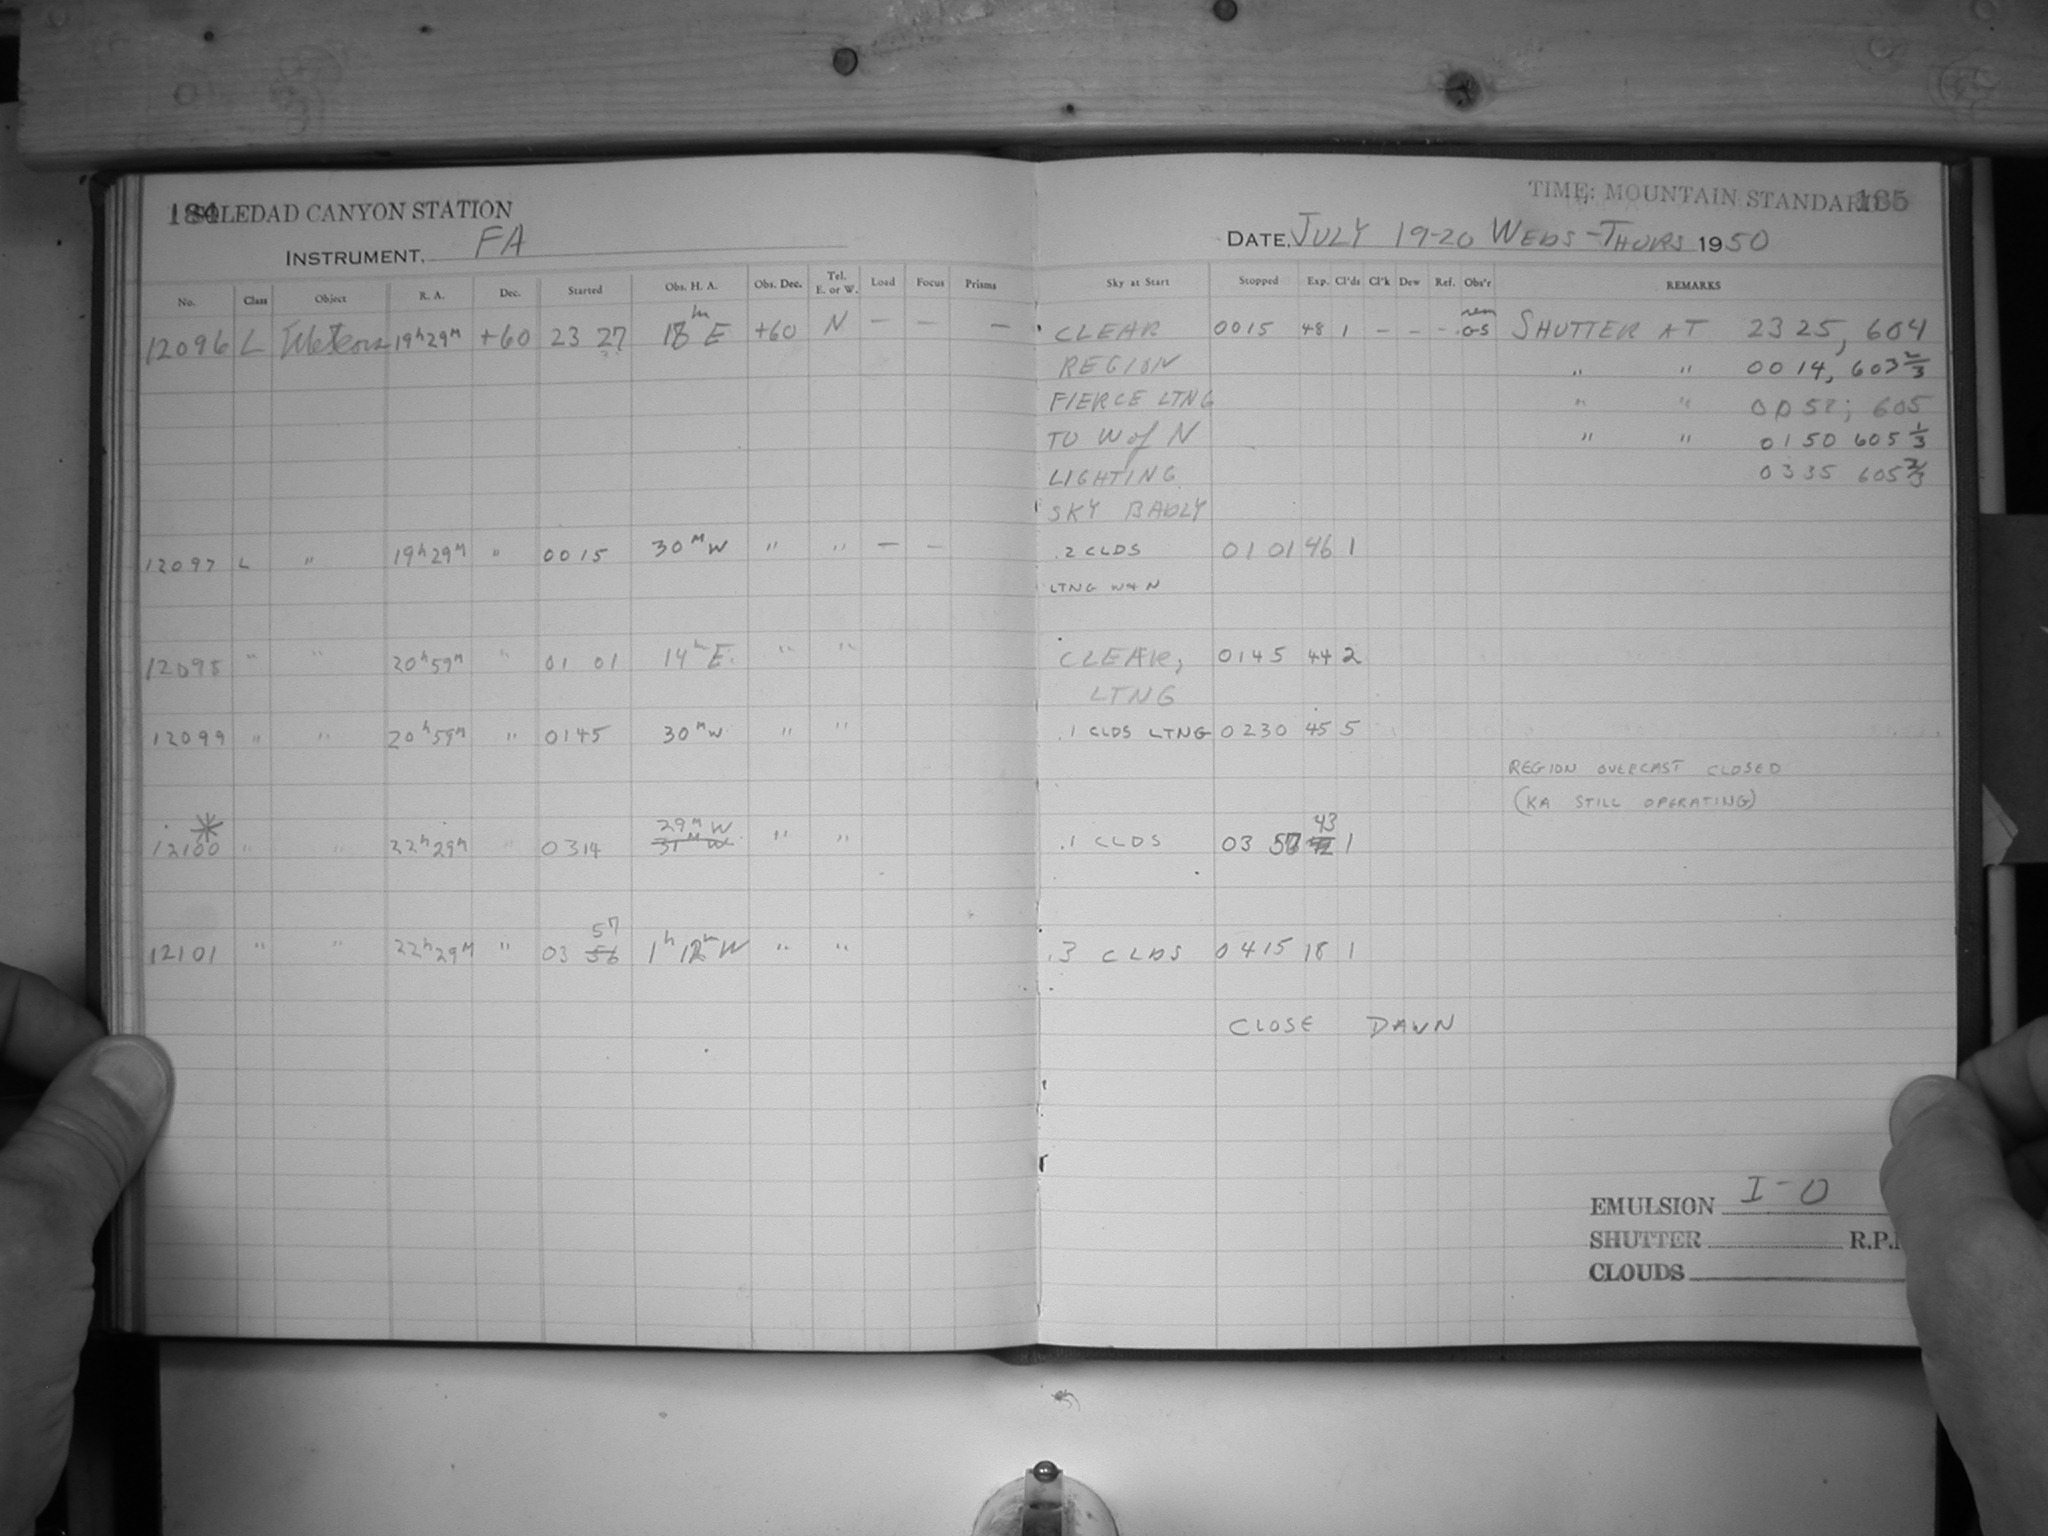 184 SOLEDAD CANYON STATION
INSTRUMENT. FA
No. Class Object R. A. Dec. Started Obs. H. A. Obs. Dec. Tel. E. or W. Load Focus Prisms
12096 L Meteors 19h29M +60 23 27 18m E +60 N — — —
12097 L " 19h29M " 0015 30M W " " — —
12098 " " 20h59M " 01 01 14m E " "
12099 " " 20h59M " 0145 30M W " "
*
12100 " " 22h29M " 0314 29M W 31M W " "
12101 " " 22h29M " 03 56 57 1h 12m W " "
TIME: MOUNTAIN STANDARD 185
DATE, JULY 19-20 WEDS-THURS 1950
Sky at Start Stopped Exp. Cl'ds Cl'k Dew Ref. Obs'r REMARKS
CLEAR 0015 48 1 - - - SHUTTER AT 2325, 604
REGION " " 0014, 603 2/3
FIERCE LTNG " " 0052; 605
TO W of N " " 0150 605 1/3
LIGHTING 0335 605 2/3
SKY BADLY
.2 CLDS 0101 46 1
LTNG W+N
CLEAR, 0145 44 2
LTNG
.1 CLDS LTNG 0230 45 5
REGION OVERCAST CLOSED
(KA STILL OPERATING)
.1 CLDS 03 57 43 1
.3 CLDS 0415 18 1
CLOSE DAWN
EMULSION I-O
SHUTTER R.P.
CLOUDS